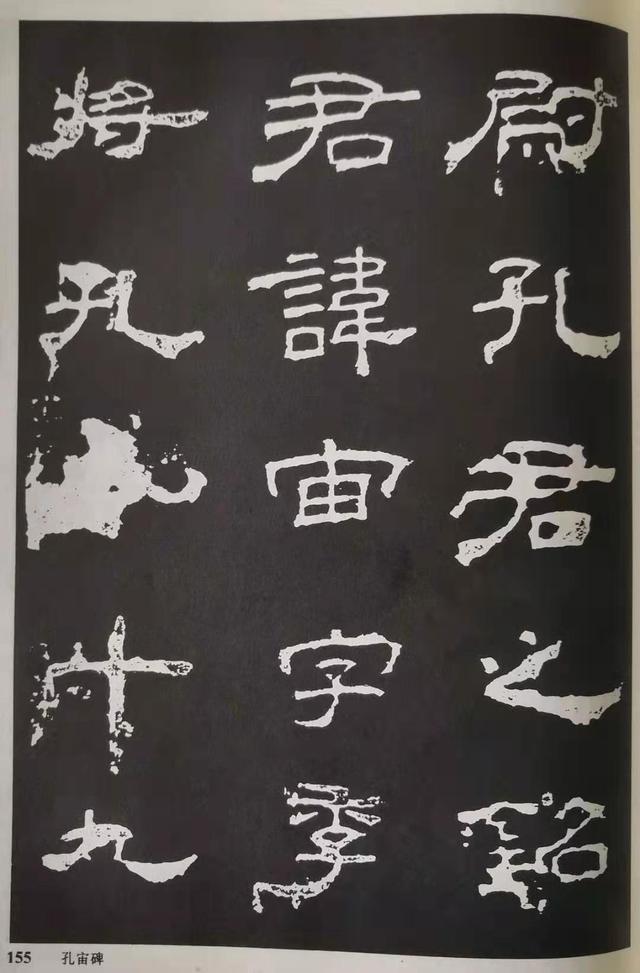 尉孔君之銘
君諱宙字季
將孔十九
155 孔宙碑